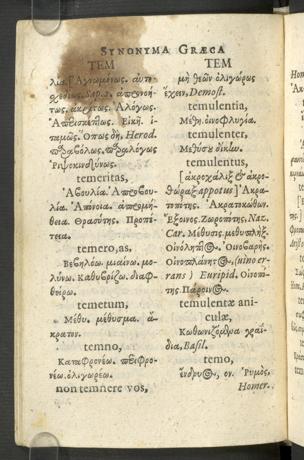 SYNONYMA GRÆCA
TEM
λία. Γ' Ἀγνωμόνως.
Ἀλόγως.
Εἰκῆ.
Ὅπως δὴ. Herod.
Ῥιψοκινδύνως.
temeritas,
Ἀβουλία.
Ἀπόνοια
θεια. Θρασύτης. Προπέ-
τεια.
temero, as,
Βεβηλόω. μιαίνω. μο-
λύνω. Καθυβρίζω. διαφ-
θείρω.
temetum,
Μέθυ. μέθυσμα. ἄ-
κρατον.
temno,
Καταφρονέω. περιφρο-
νέω. ὀλιγωρέω.
non temnere vos,
TEM
μὴ θεῶν ὀλιγώρως
ἔχειν, Demost.
temulentia,
Μέθη. οἰνοφλυγία.
temulenter,
Μεθύσου δίκην.
temulentus,
[ἀκροχάλιξ & ἀκρο-
θώραξ appotus] Ἀκρα-
τοπότης. Ἀκρατοκώθων.
Ἔξοινος. Ζωροπότης, Naz.
Car. Μέθυσος. μεθυπλήξ.
Οἰνόληπτος. Οἰνοβαρής.
Οἰνοπλάνητος, (vino er-
rans) Euripid. Οἰνοπό-
της. Πάροινος.
temulentæ ani-
culæ,
Κωθωνιζόμεναι γραΐ-
δια, Basil.
temo,
ὁ, ου. Ῥυμὸς,
Homer.